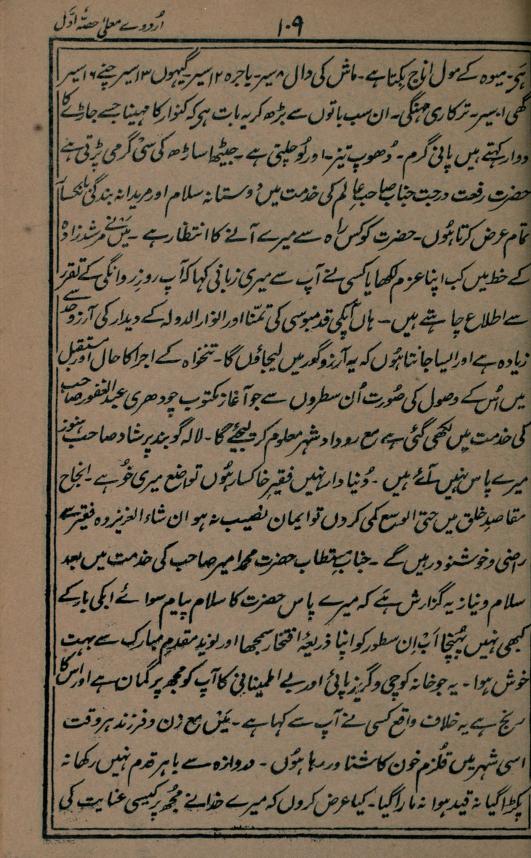 اُردوے معلیٰ حصّۂ اوّل
۱۰۹
ہی۔ میوہ کے مول اناج بکتا ہے۔ ماش کی دال ۸سیر۔ باجرہ ۱۲سیر۔ گیہوں ۱۳سیر چنے ۱۶سیر
گھی ۱سیر۔ ترکاری مہنگی۔ ان سب باتوں سے بڑھ کر یہ بات ہی کہ کنوار کا مہینا جسے جاڑے کا
دوار کہتے ہیں پانی گرم۔ دھوپ تیز۔ اور لُو چلتی ہے۔ جیٹھ اساڑھ کی سی گرمی پڑتی ہے
حضرت رفعت درجت جناب صاحبِ عالم کی خدمت میں دوستانہ سلام اور مریدانہ بندگی بانکسار
تمام عرض کرتا ہوں۔ حضرت کو کس راہ سے میرے آنے کا انتظار ہے۔ میں نے مرشد زادہ
کے خط میں کب اپنا عزم لکھا یا کسی نے آپ سے میری زبانی کہا کہ آپ روز روانگی کے تقرر
سے اطلاع چاہتے ہیں۔ ہاں آپکی قدمبوسی کی تمنّا اور انوار الدولہ کے دیدار کی آرزو حد سے
زیادہ ہے اور ایسا جانتا ہوں کہ یہ آرزو گور میں لیجاؤں گا۔ تنخواہ کے اجرا کا حال اور مستقبل
میں اُس کے وصول کی صُورت اُن سطروں سے جو آغاز مکتوب چودھری عبد الغفور صاحب
کی خدمت میں لکھی گئی ہے مع رودادِ شہر معلوم کر لیجئے گا۔ لالہ گوبند پرشاد صاحب ہنوز
میرے پاس نہیں آئے ہیں۔ دُنیا دار نہیں فقیر خاکسار ہُوں تواضع میری خُو ہے۔ انجاح
مقاصدِ خلق میں حتی الوسع کمی کروں تو ایمان نصیب نہ ہو ان شاء العزیز وہ فقیر سے
راضی و خوشنود رہیں گے۔ جناب مستطاب حضرت محمد امیر صاحب کی خدمت میں بعد
سلام و نیاز یہ گزارش ہے کہ میرے پاس حضرت کا سلام پیام سوائے ابکی بار کے
کبھی نہیں پہنچا اب ان سطور کو اپنا ذریعۂ افتخار سمجھا اور نوید مقدم مبارک سے بہت
خوش ہوا۔ یہ جو خانہ کوچی و گریز پائی اور بے اطمینانی کا آپ کو مجھ پر گمان ہے اور اس کا
رنج ہے یہ خلاف واقع کسی نے آپ سے کہا ہے۔ میں مع زن و فرزند ہر وقت
اسی شہر میں قلزم خون کا شناور رہا ہوں۔ دروازہ سے باہر قدم نہیں رکھا نہ
پکڑا گیا نہ قید ہوا نہ مارا گیا۔ کیا عرض کروں کہ میرے خدا نے مُجھ پر کیسی عنایت کی